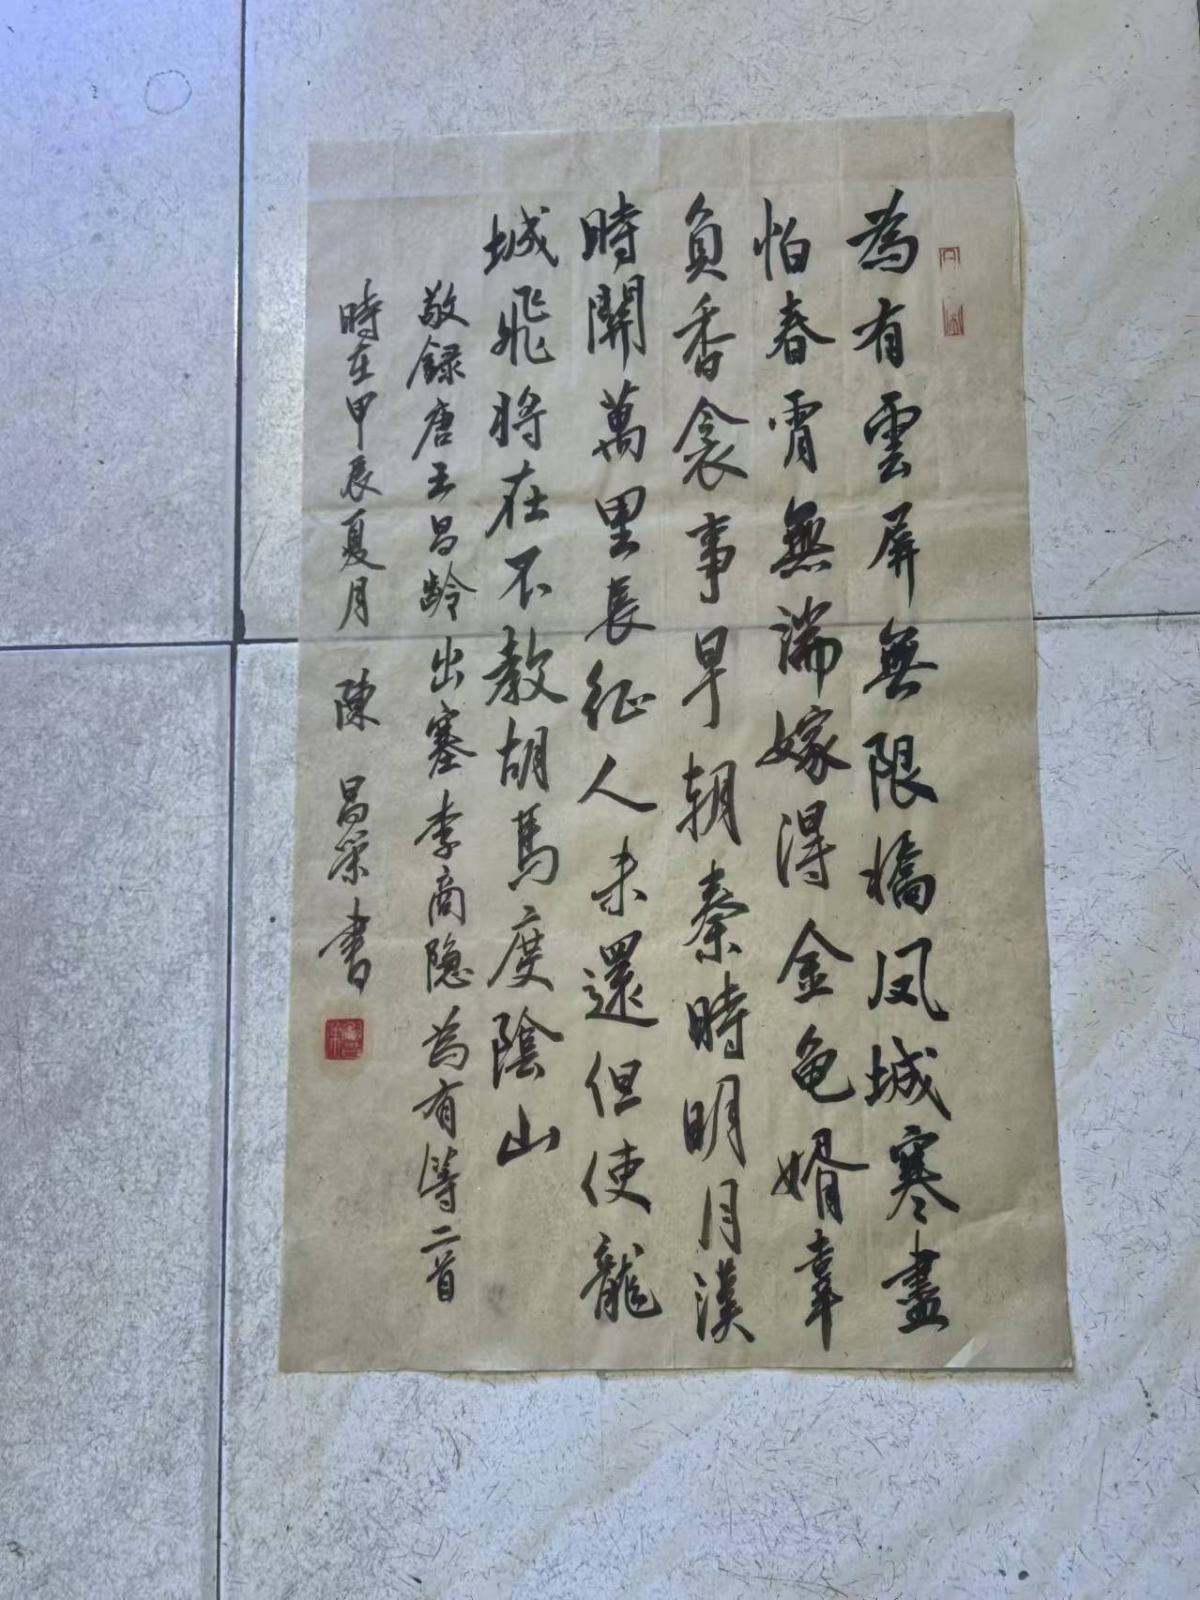 為有雲屏無限嬌凤城寒盡
怕春宵無端嫁得金龟婿辜
負香衾事早朝秦時明月漢
時關萬里長征人未還但使龍
城飛將在不教胡馬度陰山
敬録唐王昌齡出塞李商隐為有等二首
時在甲辰夏月 陳昌榮書